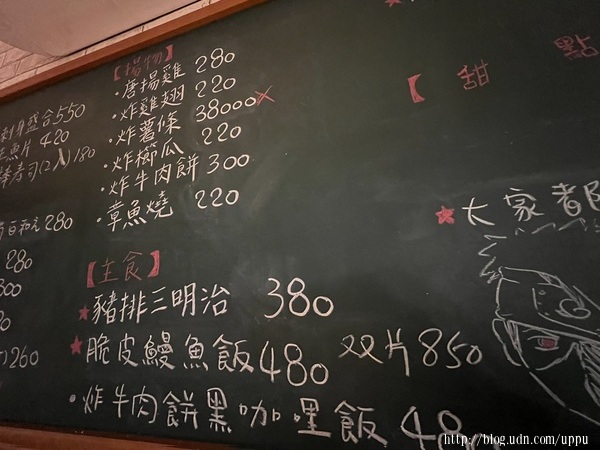 【揚物】
・唐揚雞 280
・炸雞翅 220
・炸薯條 38000
・炸櫛瓜 220
・炸牛肉餅 300
・章魚燒 220
【主食】
豬排三明治 380
脆皮鰻魚飯 480 双片 850
・炸牛肉餅黑咖哩飯 48
刺身盛合 550
片 420
壽司(2入) 180
280
280
300
260
【甜 點
大家都
http://blog.udn.com/uppu